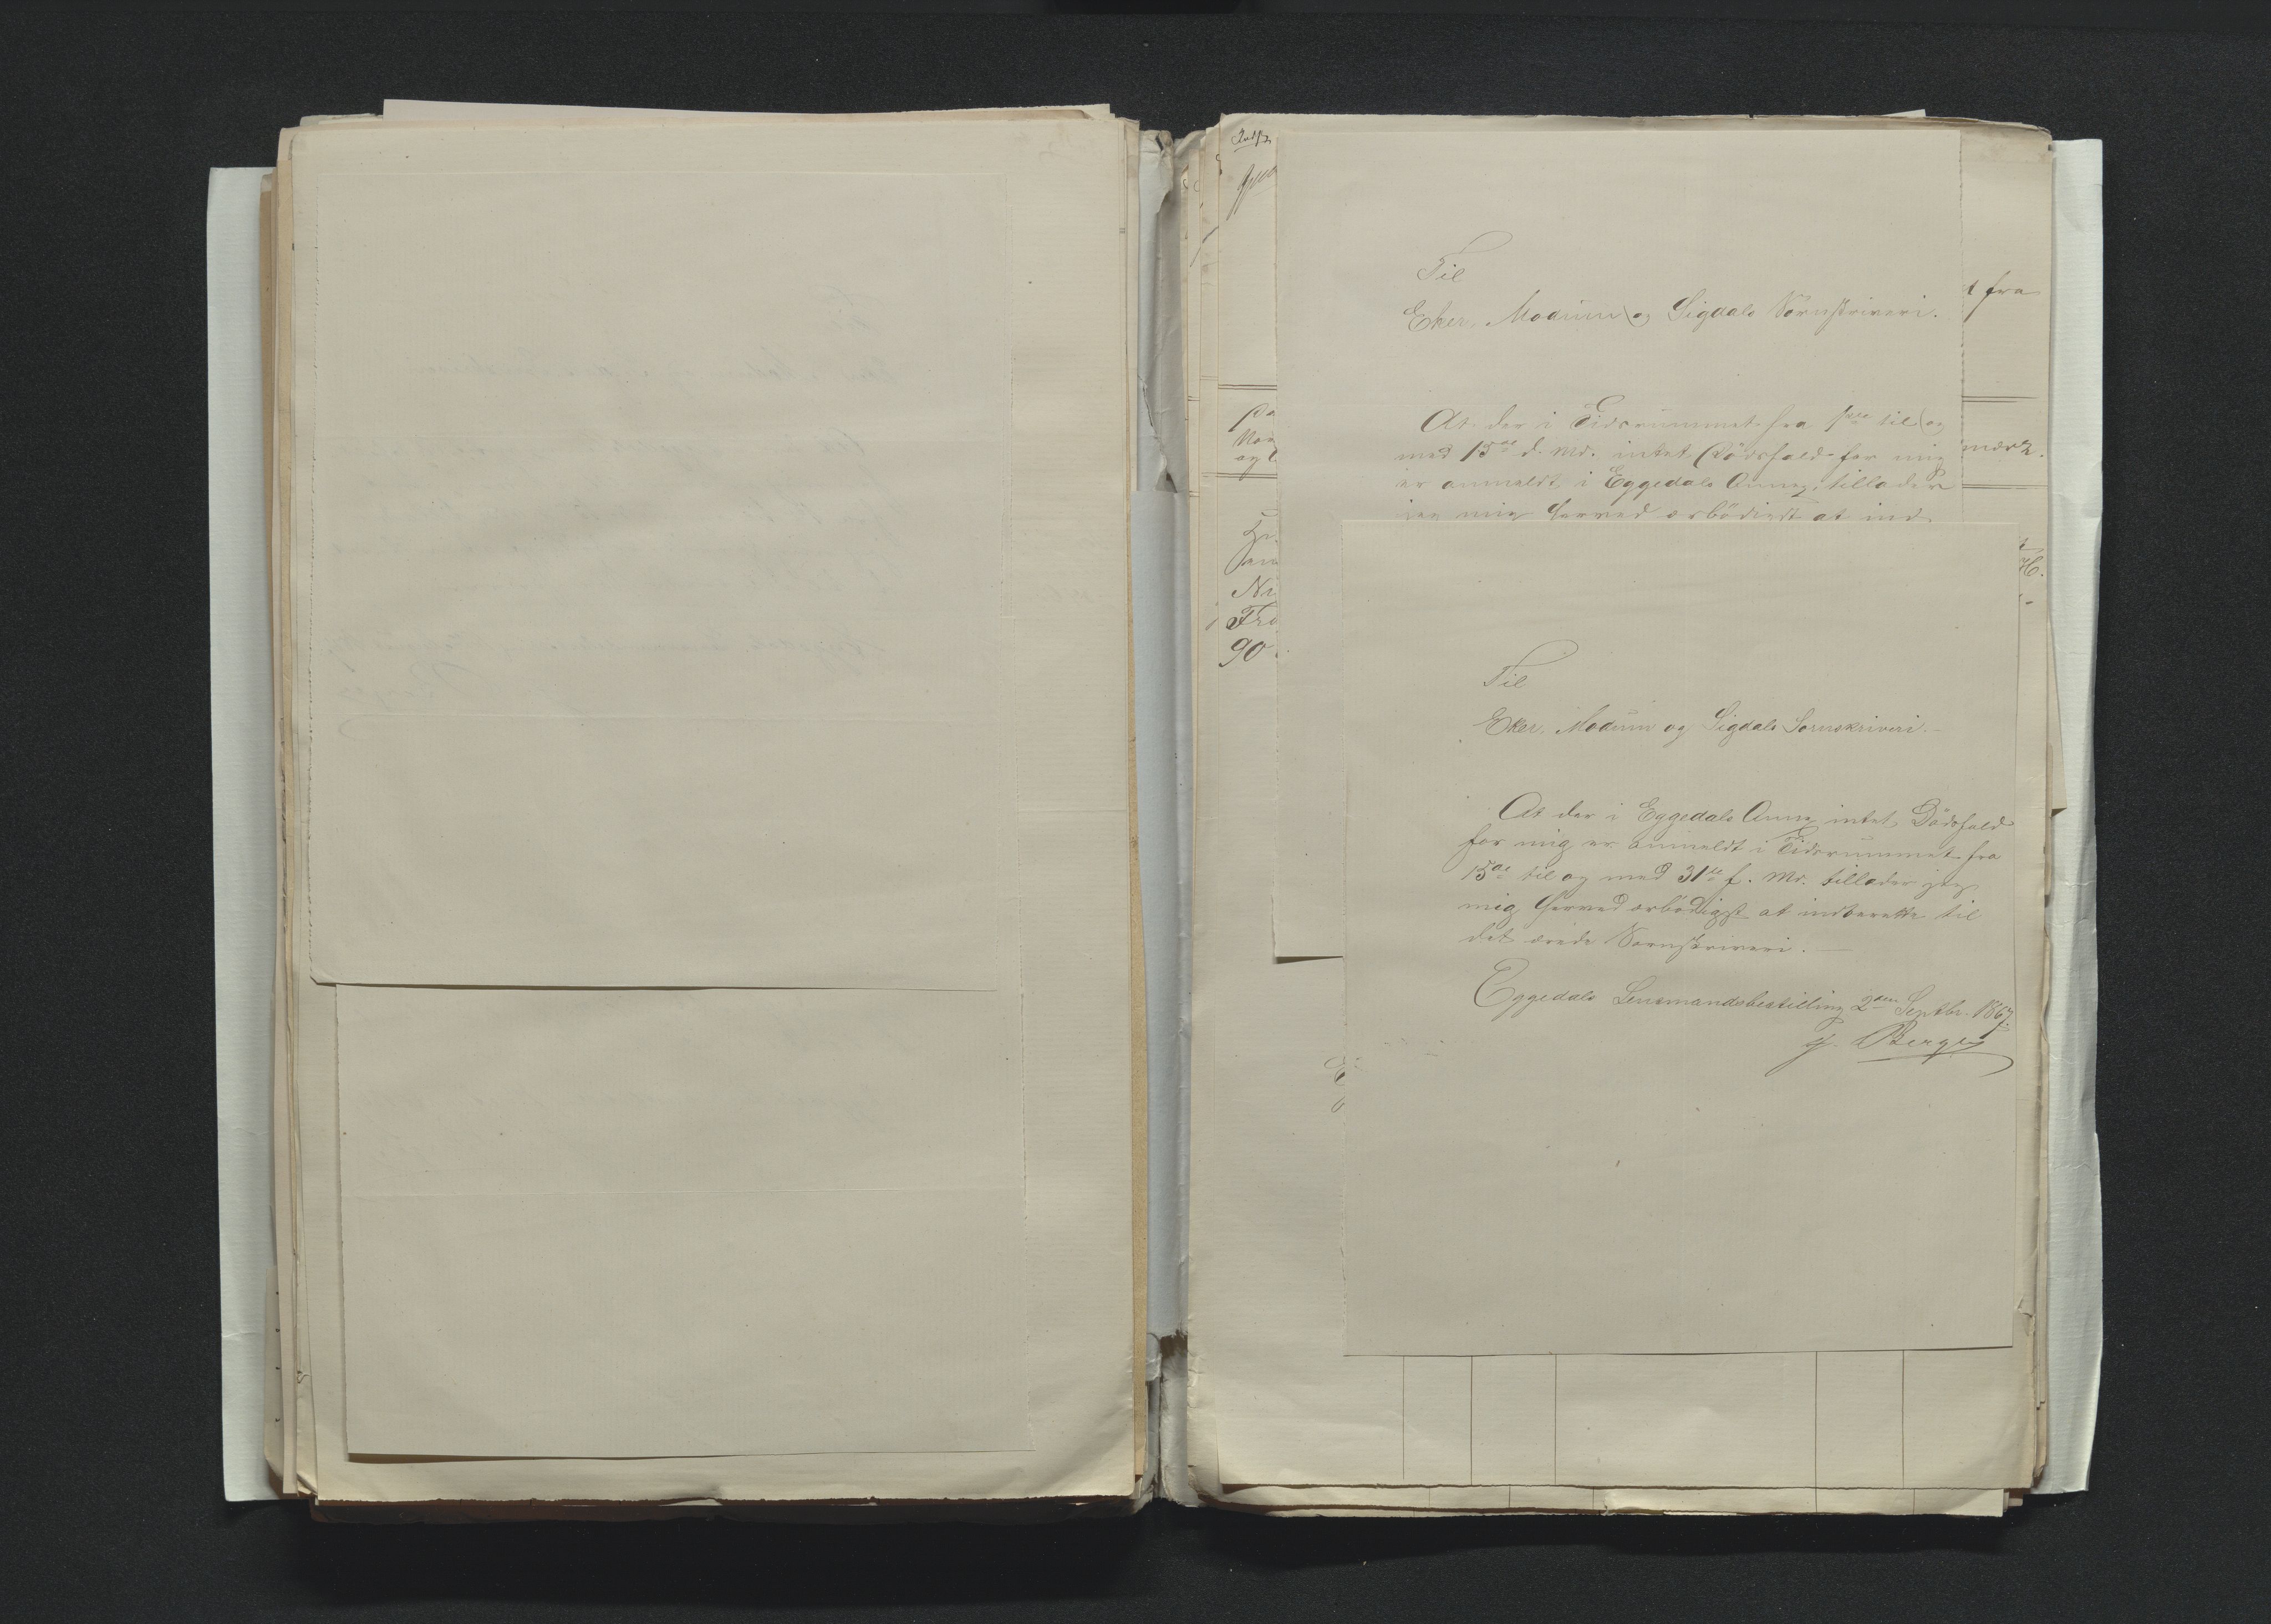 Til
Eker, Modum og Sigdals Sorenskriveri.
At der i Tidsrummet fra 1ste til og
med 15de d. Md. intet Dödsfald for mig
er anmeldt i Eggedals Annex, tillader
jeg mig herved ærbödigst at ind-
Til
Eker, Modum og Sigdals Sorenskriveri.
At der i Eggedals Annex intet Dödsfald
for mig er anmeldt i Tidsrummet fra
15de til og med 31te f. Md. tillader jeg
mig herved ærbödigst at indberette til
det ærede Sorenskriveri.
Eggedals Lensmandsbestilling 2den Septbr. 1867.
Berge
t fra
mærk.
Ni
Fra
90